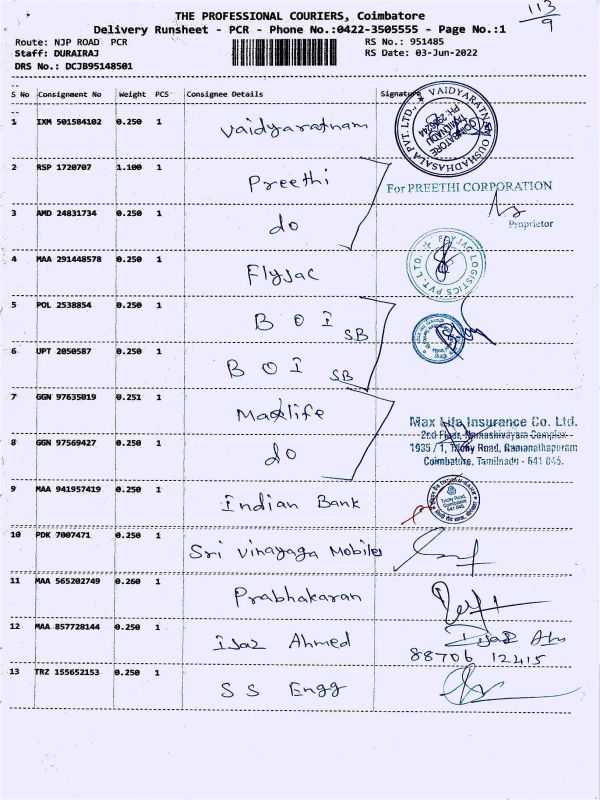 113
9
THE PROFESSIONAL COURIERS, Coimbatore
Delivery Runsheet - PCR - Phone No.:0422-3505555 - Page No.:1
Route: NJP ROAD PCR
RS No.: 951485
Staff: DURAIRAJ
RS Date: 03-Jun-2022
DRS No.: DCJB95148501
S No Consignment No Weight PCS Consignee Details Signature
1 IXM 501584102 0.250 1 Vaidyaratnam
VAIDYARATNAM OUSHADHASALA PVT. LTD.
COIMBATORE
TAMILNADU
2 RSP 1720707 1.100 1 Preethi
For PREETHI CORPORATION
3 AMD 24831734 0.250 1 do
Proprietor
4 MAA 291448578 0.250 1 Flyjac
FLYJAC LOGISTICS PVT. LTD.
5 POL 2538854 0.250 1 B O I SB
6 UPT 2050587 0.250 1 B O I SB
7 GGN 97635019 0.251 1 Maxlife
Max Life Insurance Co. Ltd.
2nd Floor, Nameshivayam Complex
8 GGN 97569427 0.250 1 do
1935 / 1, Trichy Road, Ramanathapuram
Coimbatore, Tamilnadu - 641 045.
9 MAA 941957419 0.250 1 Indian Bank
Trichy Road,
Coimbatore
641 045
10 PDK 7007471 0.250 1 Sri Vinayaga Mobiles
11 MAA 565202749 0.260 1 Prabhakaran
12 MAA 857728144 0.250 1 Ijaz Ahmed
88706 12415
13 TRZ 155652153 0.250 1 S S Engg